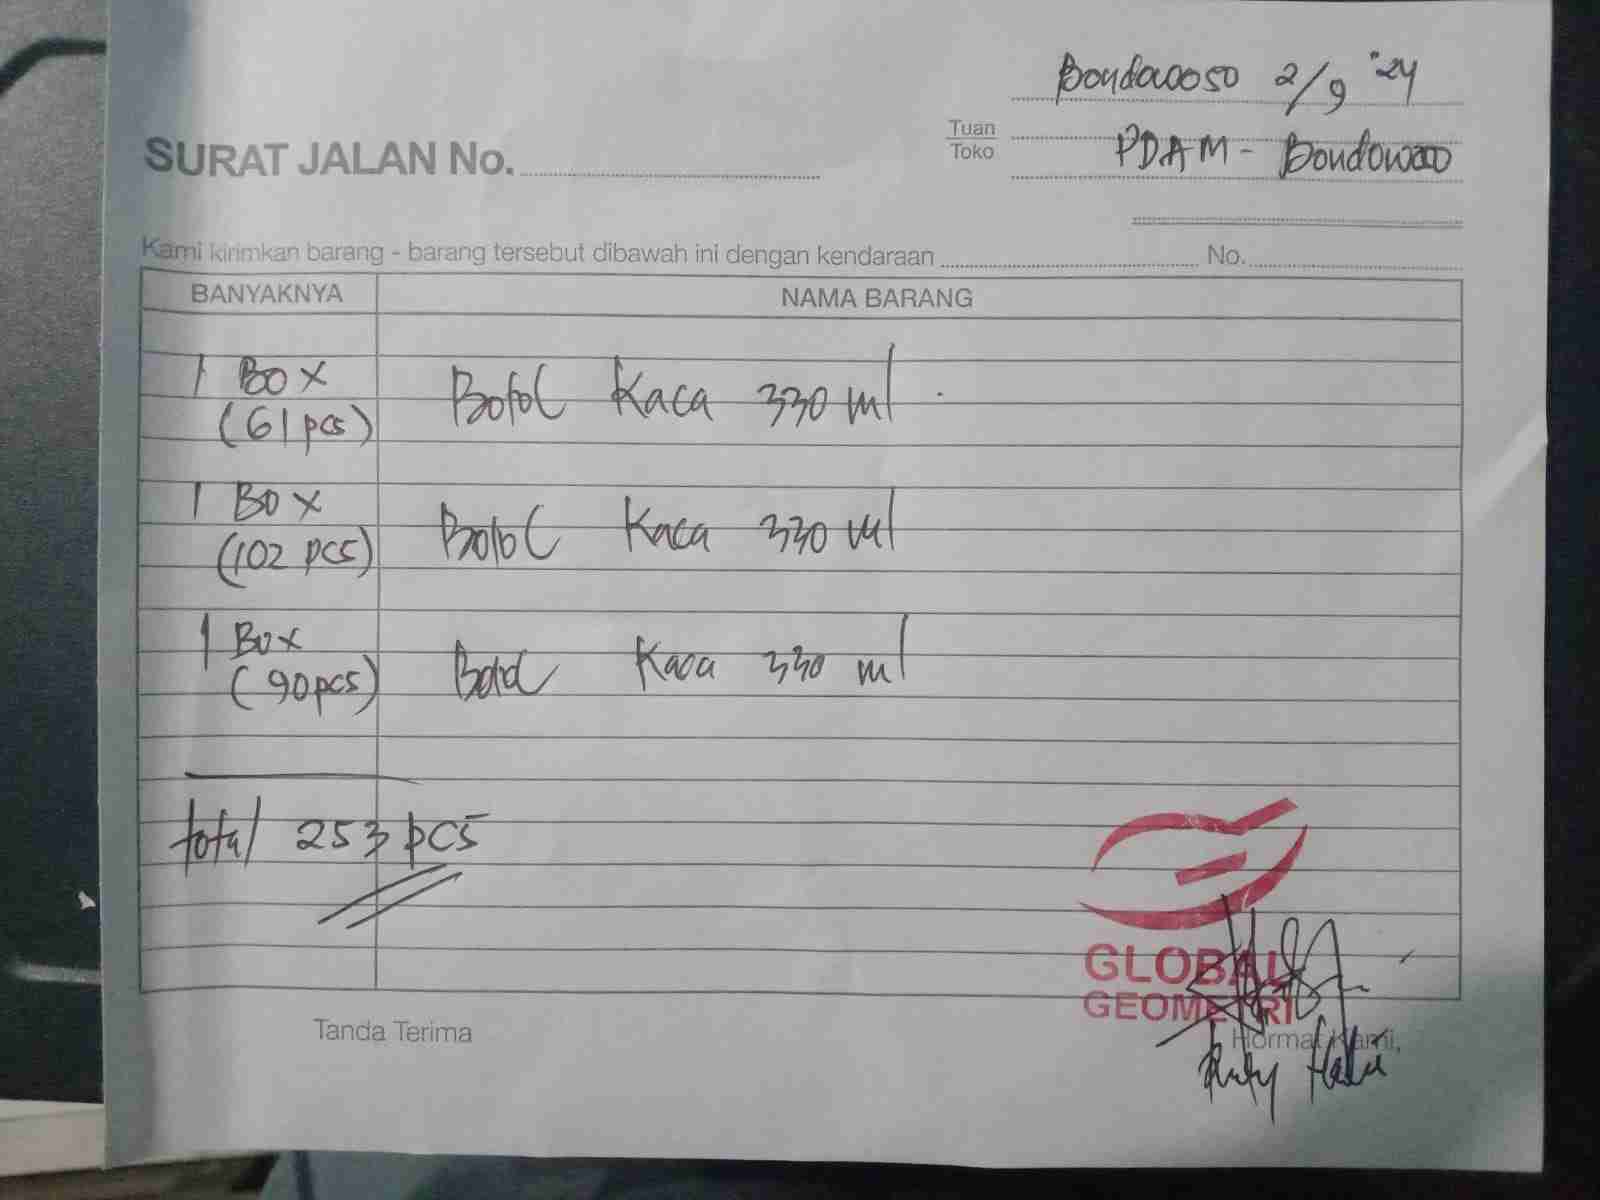 Bondowoso 2/9 '24
SURAT JALAN No.
Tuan
Toko
PDAM - Bondowoso
Kami kirimkan barang - barang tersebut dibawah ini dengan kendaraan No.
BANYAKNYA NAMA BARANG
1 Box Botol Kaca 330 ml
(61 pcs)
1 Box Botol Kaca 330 ml
(102 pcs)
1 Box Botol Kaca 330 ml
(90 pcs)
total 253 pcs
GLOBAL
GEOMETRI
Tanda Terima Hormat Kami,